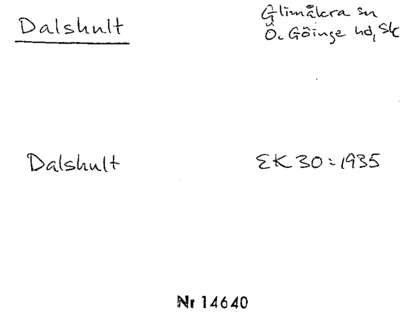 Dalshult
Glimåkra sn
Ö. Göinge hd, Sk
Dalshult
EK 30 : 1935
Nr 14640